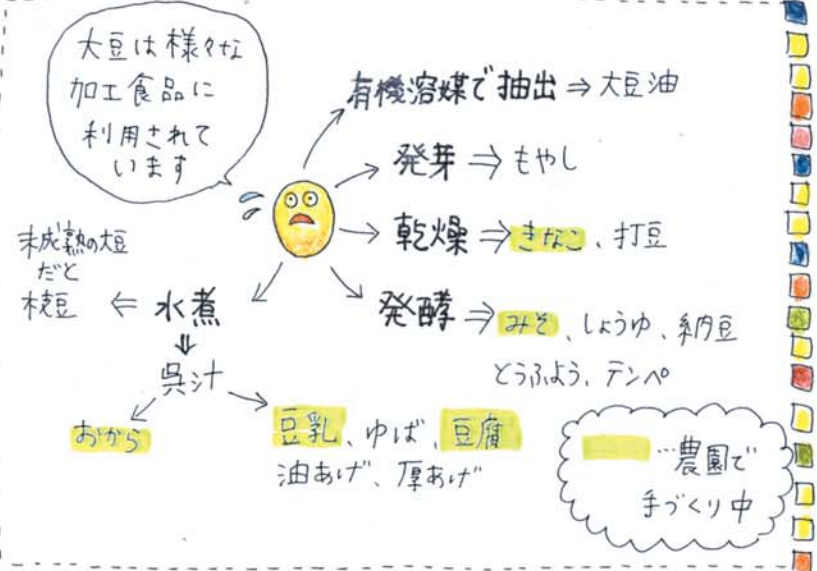 大豆は様々な
加工食品に
利用されて
います
有機溶媒で抽出⇒大豆油
発芽⇒もやし
乾燥⇒きなこ、打豆
発酵⇒みそ、しょうゆ、納豆
とうふよう、テンペ
未成熟の大豆
だと
枝豆⇐水煮
⇓
呉汁
おから
豆乳、ゆば、豆腐
油あげ、厚あげ
…農園で
手づくり中